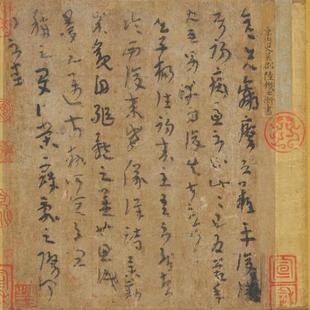 晉平原內史吳郡陸機士衡書
彥先羸瘵恐難平復往屬
初病慮不止此此已為慶承
使唯男幸為復失前憂耳
吳子楊往初來主吾不能盡
臨西復來威儀詳跱舉動
成觀自軀體之美也思識
量之邁前執所恒有宜
稱之夏伯榮寇亂之際聞問
不悉